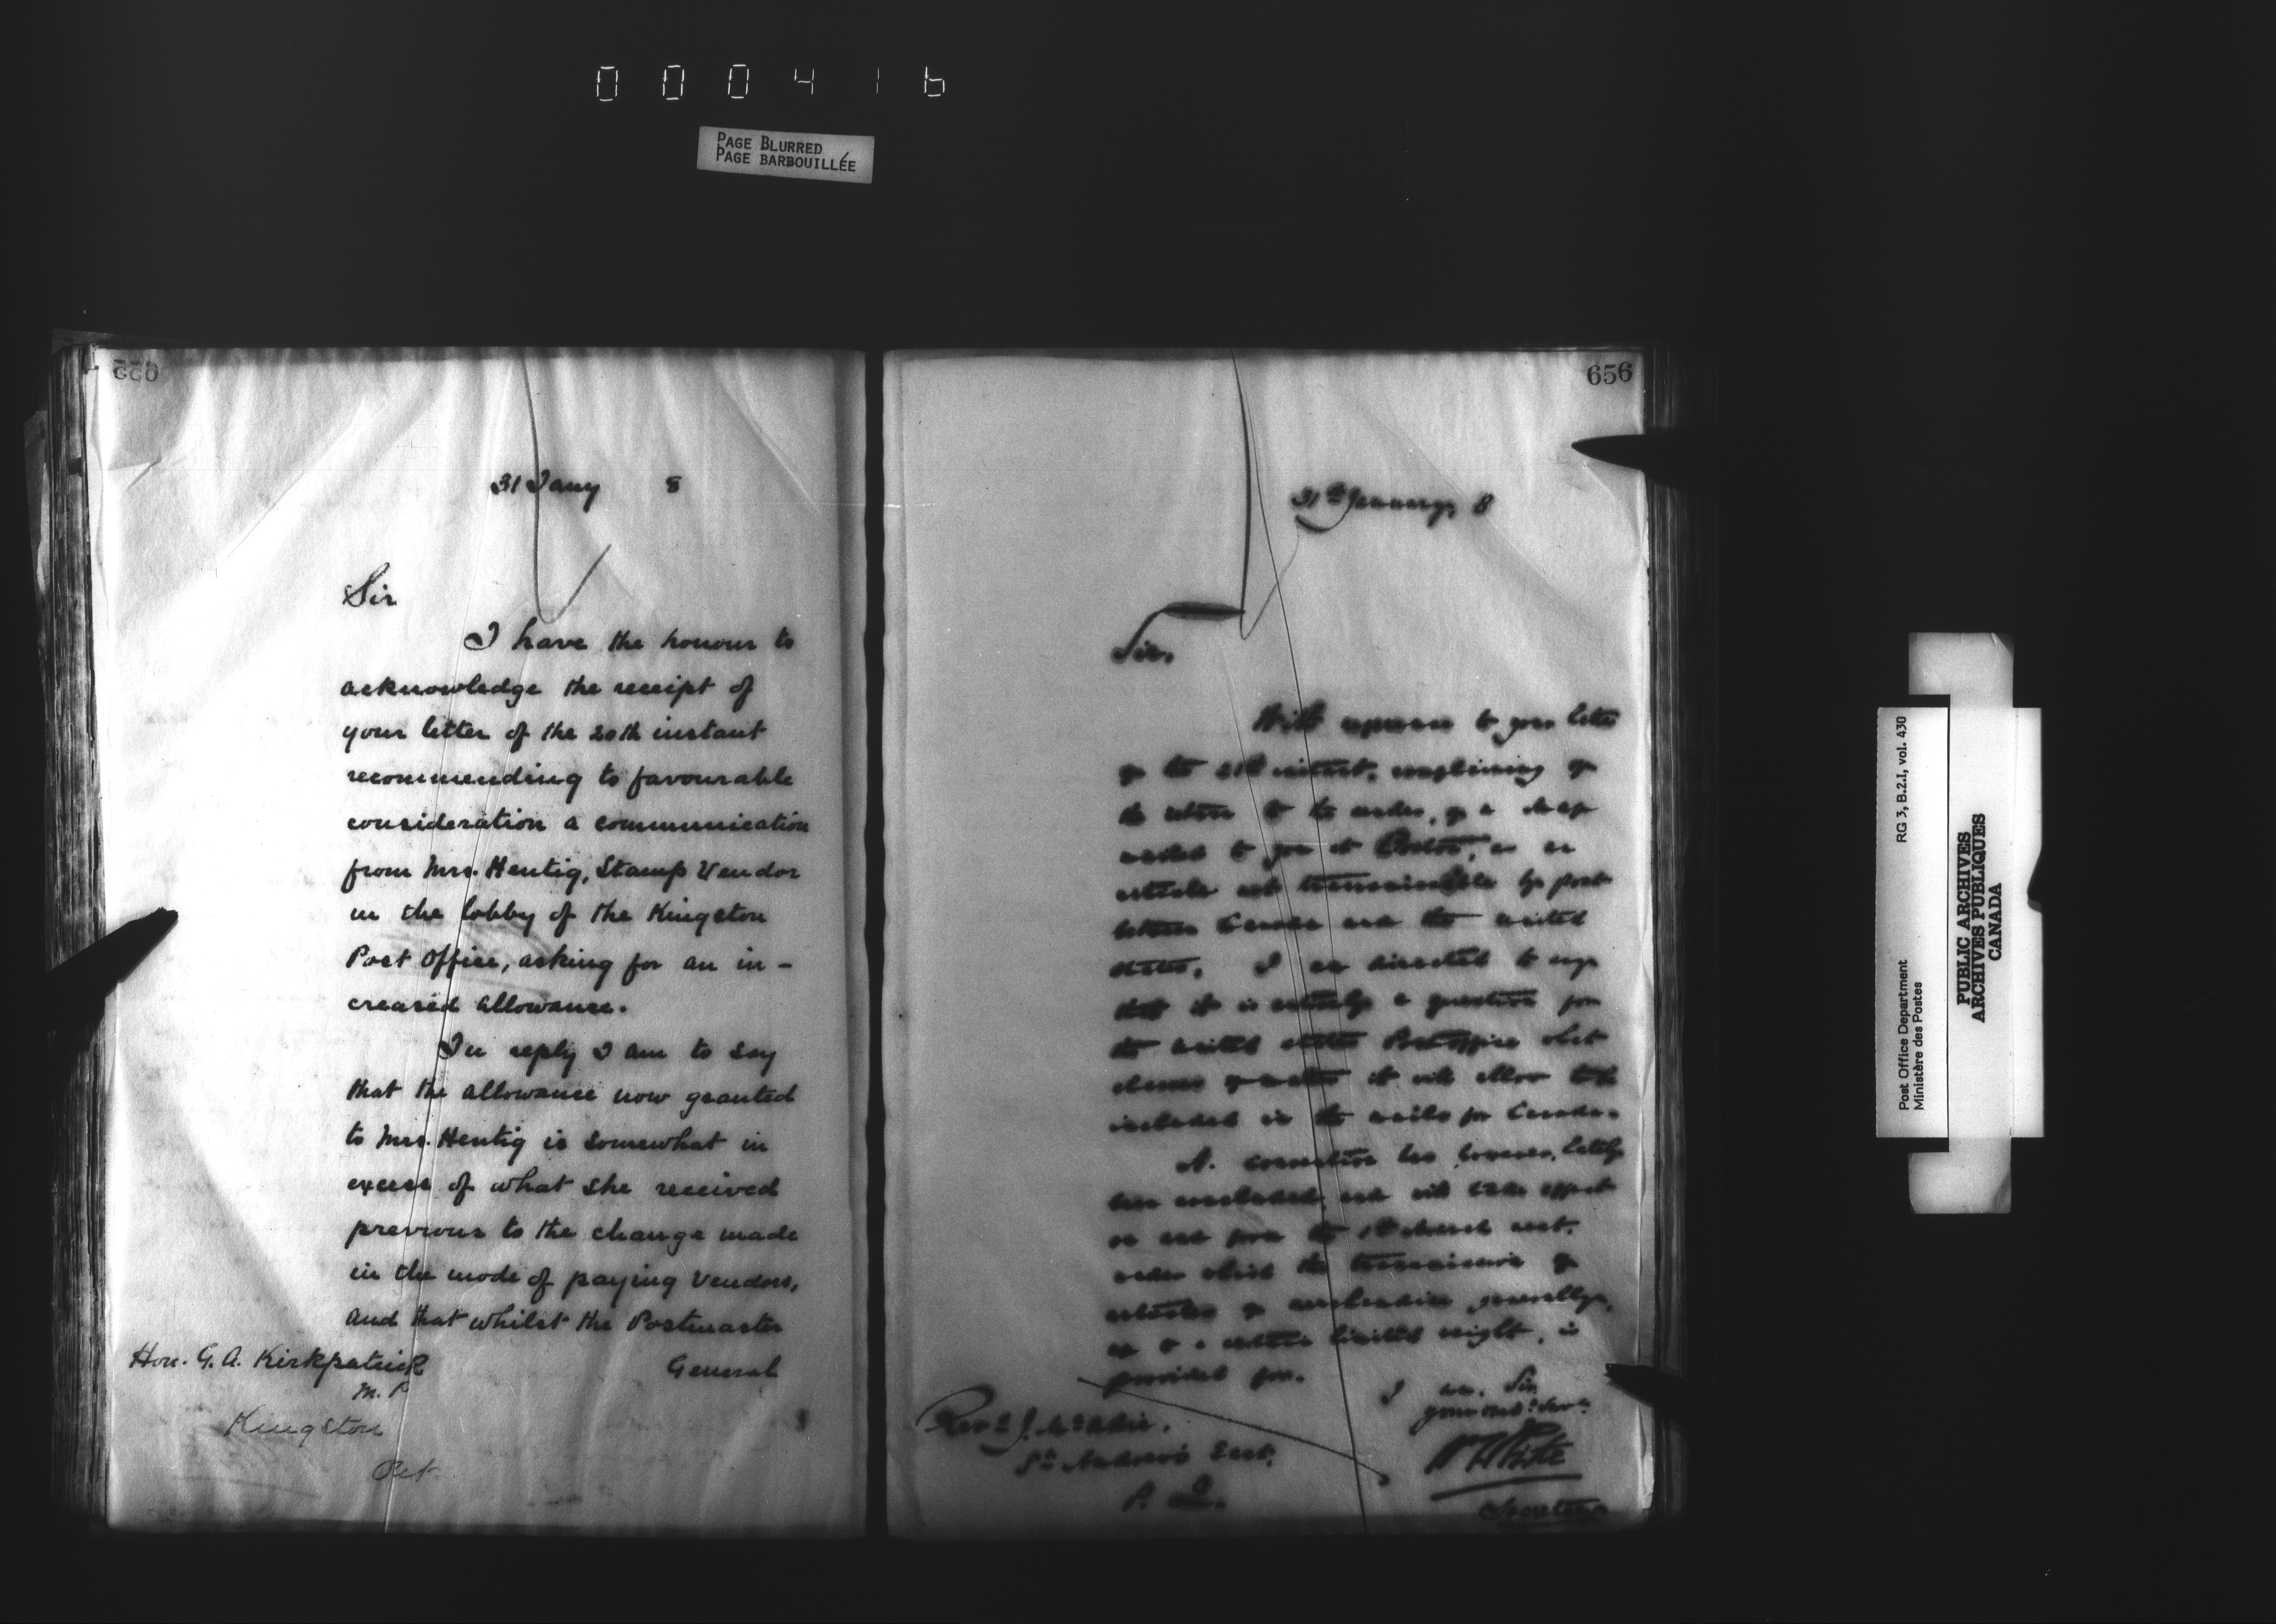 000416
PAGE BLURRED
PAGE BARBOUILLÉE
655
31 Jany 8
Sir
I have the honour to
acknowledge the receipt of
your letter of the 20th instant
recommending to favourable
consideration a communication
from Mrs. Hentig, Stamp Vendor
in the lobby of the Kingston
Post Office, asking for an in-
creased allowance.
In reply I am to say
that the allowance now granted
to Mrs. Hentig is somewhat in
excess of what she received
previous to the change made
in the mode of paying vendors,
and that whilst the Postmaster
General
Hon. G. A. Kirkpatrick
M. P
Kingston
Ont
656
31st January, 8
Sir,
With reference to your letter
of the instant, complaining of
the return to the sender, of a
mailed to you at Boston, as an
article not transmissible by post
between Canada and the United
States, I am directed to say
that it is entirely a question for
the United States Post Office what
classes of matter it will allow to be
included in the mails for Canada.
A convention has, however, lately
been concluded, and will take effect
on and from the 1st March next,
under which the transmission of
articles of merchandise generally,
up to a certain limited weight, is
provided for.
I am, Sir,
your obt. Servt.
Secretary
Revd J.
St Andrew's East,
P. Q.
Post Office Department
Ministère des Postes
RG 3, B.2.I, vol. 430
PUBLIC ARCHIVES
ARCHIVES PUBLIQUES
CANADA